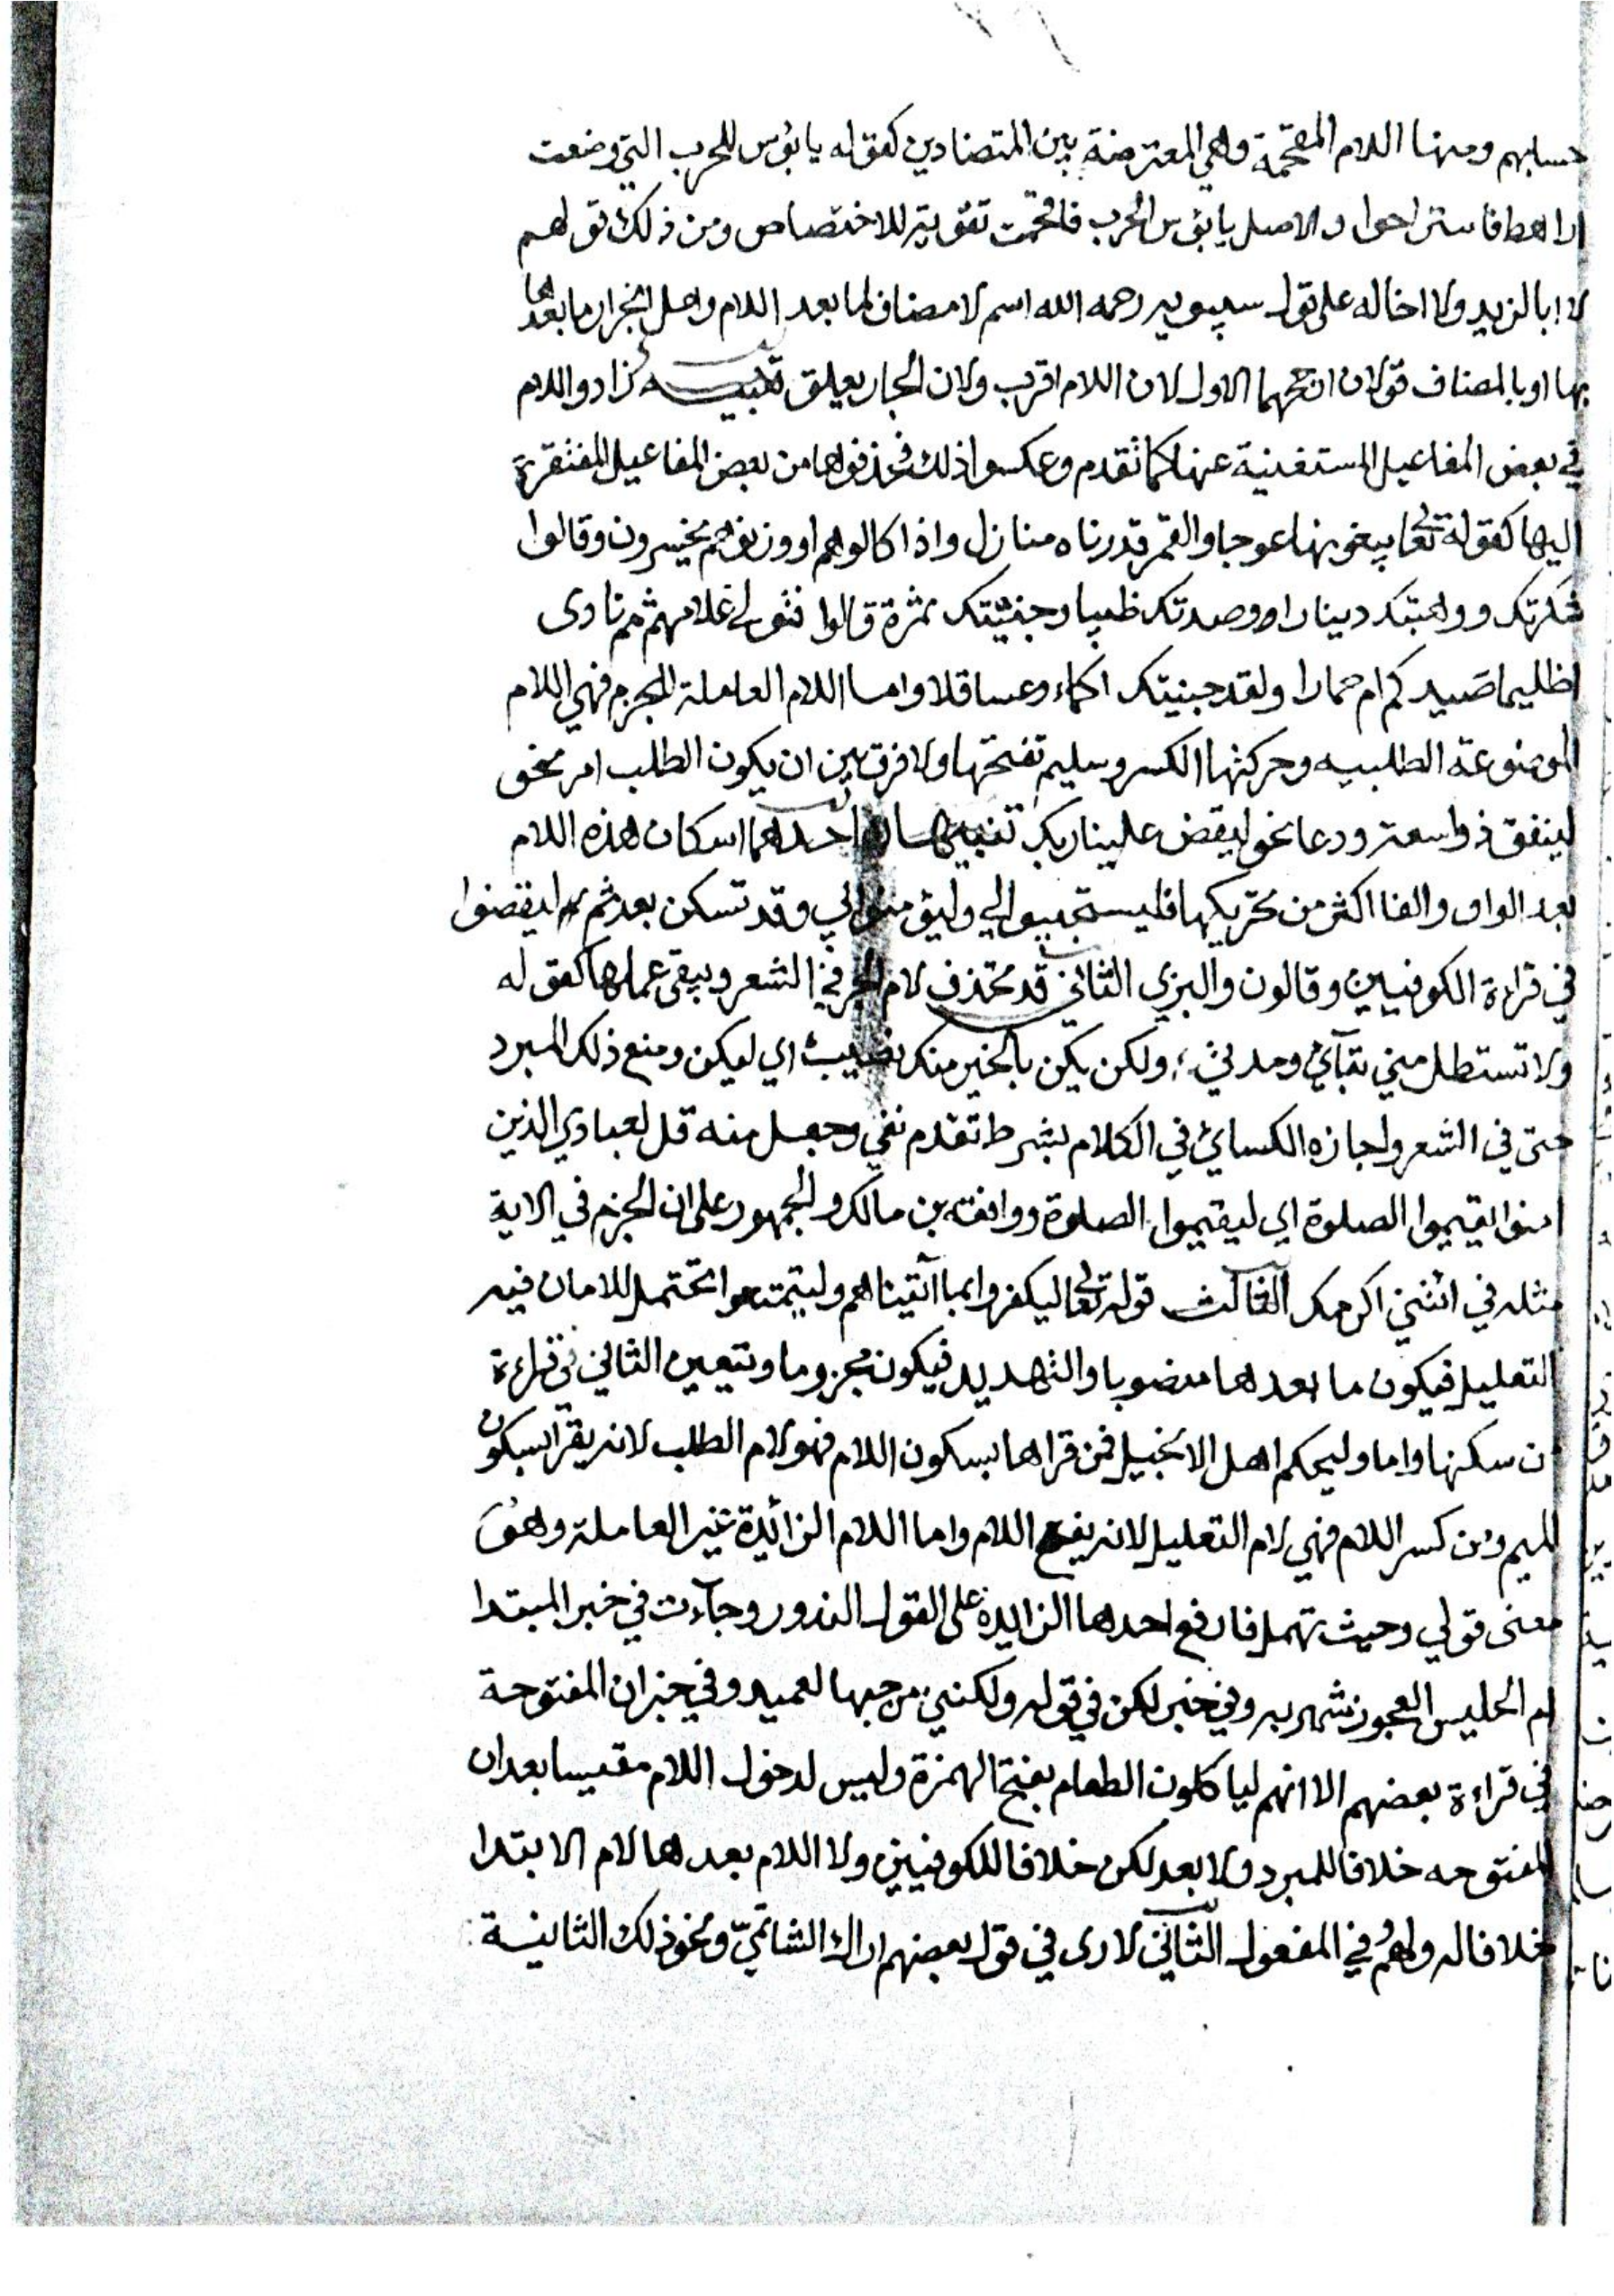 حسابهم ومنها اللام المقحمة وهي المعترضة بين المتضادين كقوله يا بؤس للحرب التي وضعت
اراهط فاستراحوا والاصل يا بؤس الحرب فاقحمت تقوية للاختصاص ومن ذلك قولهم
لا ابا لزيد ولا اخا له على قول سيبويه رحمه الله اسم لا مضاف لما بعد اللام وهل انجرار ما بعدها
بها او بالمضاف قولان ارجحهما الاول لان اللام اقرب ولان الجار يعلق تنبيه زادو اللام
في بعض المفاعيل المستغنية عنها كما تقدم وعكسوا ذلك فحذفوها من بعض المفاعيل المفتقرة
اليها كقوله تعالى يبغونها عوجا والقمر قدرناه منازل واذا كالوهم او وزنوهم يخسرون وقالوا
شكرتك ووهبتك دينارا وصدتك ظبيا وجنيتك ثمرة قالوا فتولى غلامهم ثم نادى
اظليما اصيدكم ام حمارا ولقد جنيتك اكماء وعساقلا واما اللام العاملة للجزم فهي اللام
الموضوعة الطلبيه وحركتها الكسر وسليم تفتحها ولا فرق بين ان يكون الطلب امر نحو
لينفق ذو اسعة ودعا نحو ليقض علينا ربك تنبيهان احدهما اسكان هذه اللام
بعد الواو والفا اكثر من تحريكها فليستجيبوا لي وليؤمنوا بي وقد تسكن بعد ثم ليقضوا
في قراءة الكوفيين وقالون والبزى الثاني قد تحذف لام الجر في الشعر ويبقى عملها كقوله
ولا تستطل مني بقآئي ومدتي ولكن يكن بالخير منك نصيب اي ليكن ومنع ذلك المبرد
حتى في الشعر واجازه الكسائي في الكلام بشرط تقدم نفي وجعل منه قل لعبادي الذين
امنوا يقيموا الصلوة اي ليقيموا الصلوة ووافقه بن مالك والجمهور على ان الجزم في الاية
مثله في ائتني اكرمك الثالث قوله تعالى ليكفروا بما آتيناهم وليتمتعوا تحتمل اللامان فيه
التعليل فيكون ما بعدهما منصوبا والتهديد فيكون مجزوما ويتعين الثاني في قراءة
من سكنها واما وليحكم اهل الانجيل فمن قراها بسكون اللام فهو لام الطلب لانه يقرا بسكون
الميم ومن كسر اللام فهي لام التعليل لانه يفتح اللام واما اللام الزائدة غير العاملة وهو
معنى قولي وحيث تهمل فارفع احدها الزايدة على القول النذور وجآءت في خبر المبتدا
ام الحليس العجوز شهربه وفي خبر لكن في قوله ولكنني من حبها لعميد وفي خبر ان المفتوحة
في قراءة بعضهم الا انهم لياكلون الطعام بفتح الهمزة وليس لدخول اللام مقيسا بعد ان
المفتوحه خلافا للمبرد ولا بعد لكن خلافا للكوفيين ولا اللام بعدها لام الابتدا
خلافا له ولهم في المفعول الثاني لارى في قول بعضهم اراك الشاتمي ونحو ذلك الثانية